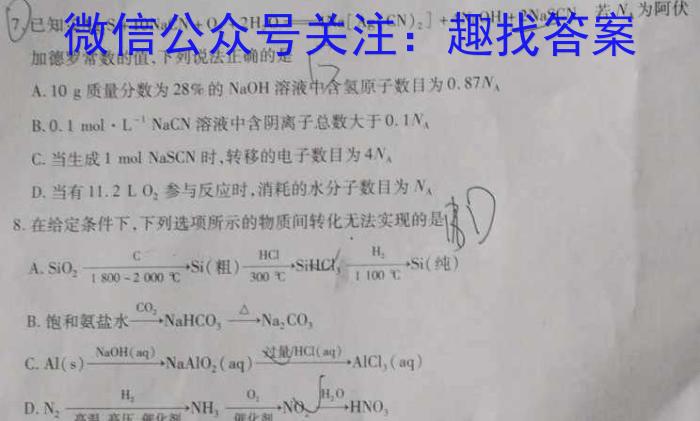 7. 已知
微信公众号关注：趣找答案
若 Nₐ 为阿伏
加德罗常数的值,下列说法正确的是
A. 10 g 质量分数为 28% 的 NaOH 溶液中含氢原子数目为 0.87Nₐ
B. 0.1 mol·L⁻¹ NaCN 溶液中含阴离子总数大于 0.1Nₐ
C. 当生成 1 mol NaSCN 时,转移的电子数目为 4Nₐ
D. 当有 11.2 L O₂ 参与反应时,消耗的水分子数目为 Nₐ
8. 在给定条件下,下列选项所示的物质间转化无法实现的是 D
A. SiO₂ —C/1 800~2 000 ℃→ Si(粗) —HCl/300 ℃→ SiHCl₃ —H₂/1 100 ℃→ Si(纯)
B. 饱和氨盐水 —CO₂→ NaHCO₃ —△→ Na₂CO₃
C. Al(s) —NaOH(aq)→ NaAlO₂(aq) —过量/HCl(aq)→ AlCl₃(aq)
D. N₂ —H₂/高温、高压、催化剂→ NH₃ —O₂/催化剂→ NO₂ —H₂O→ HNO₃